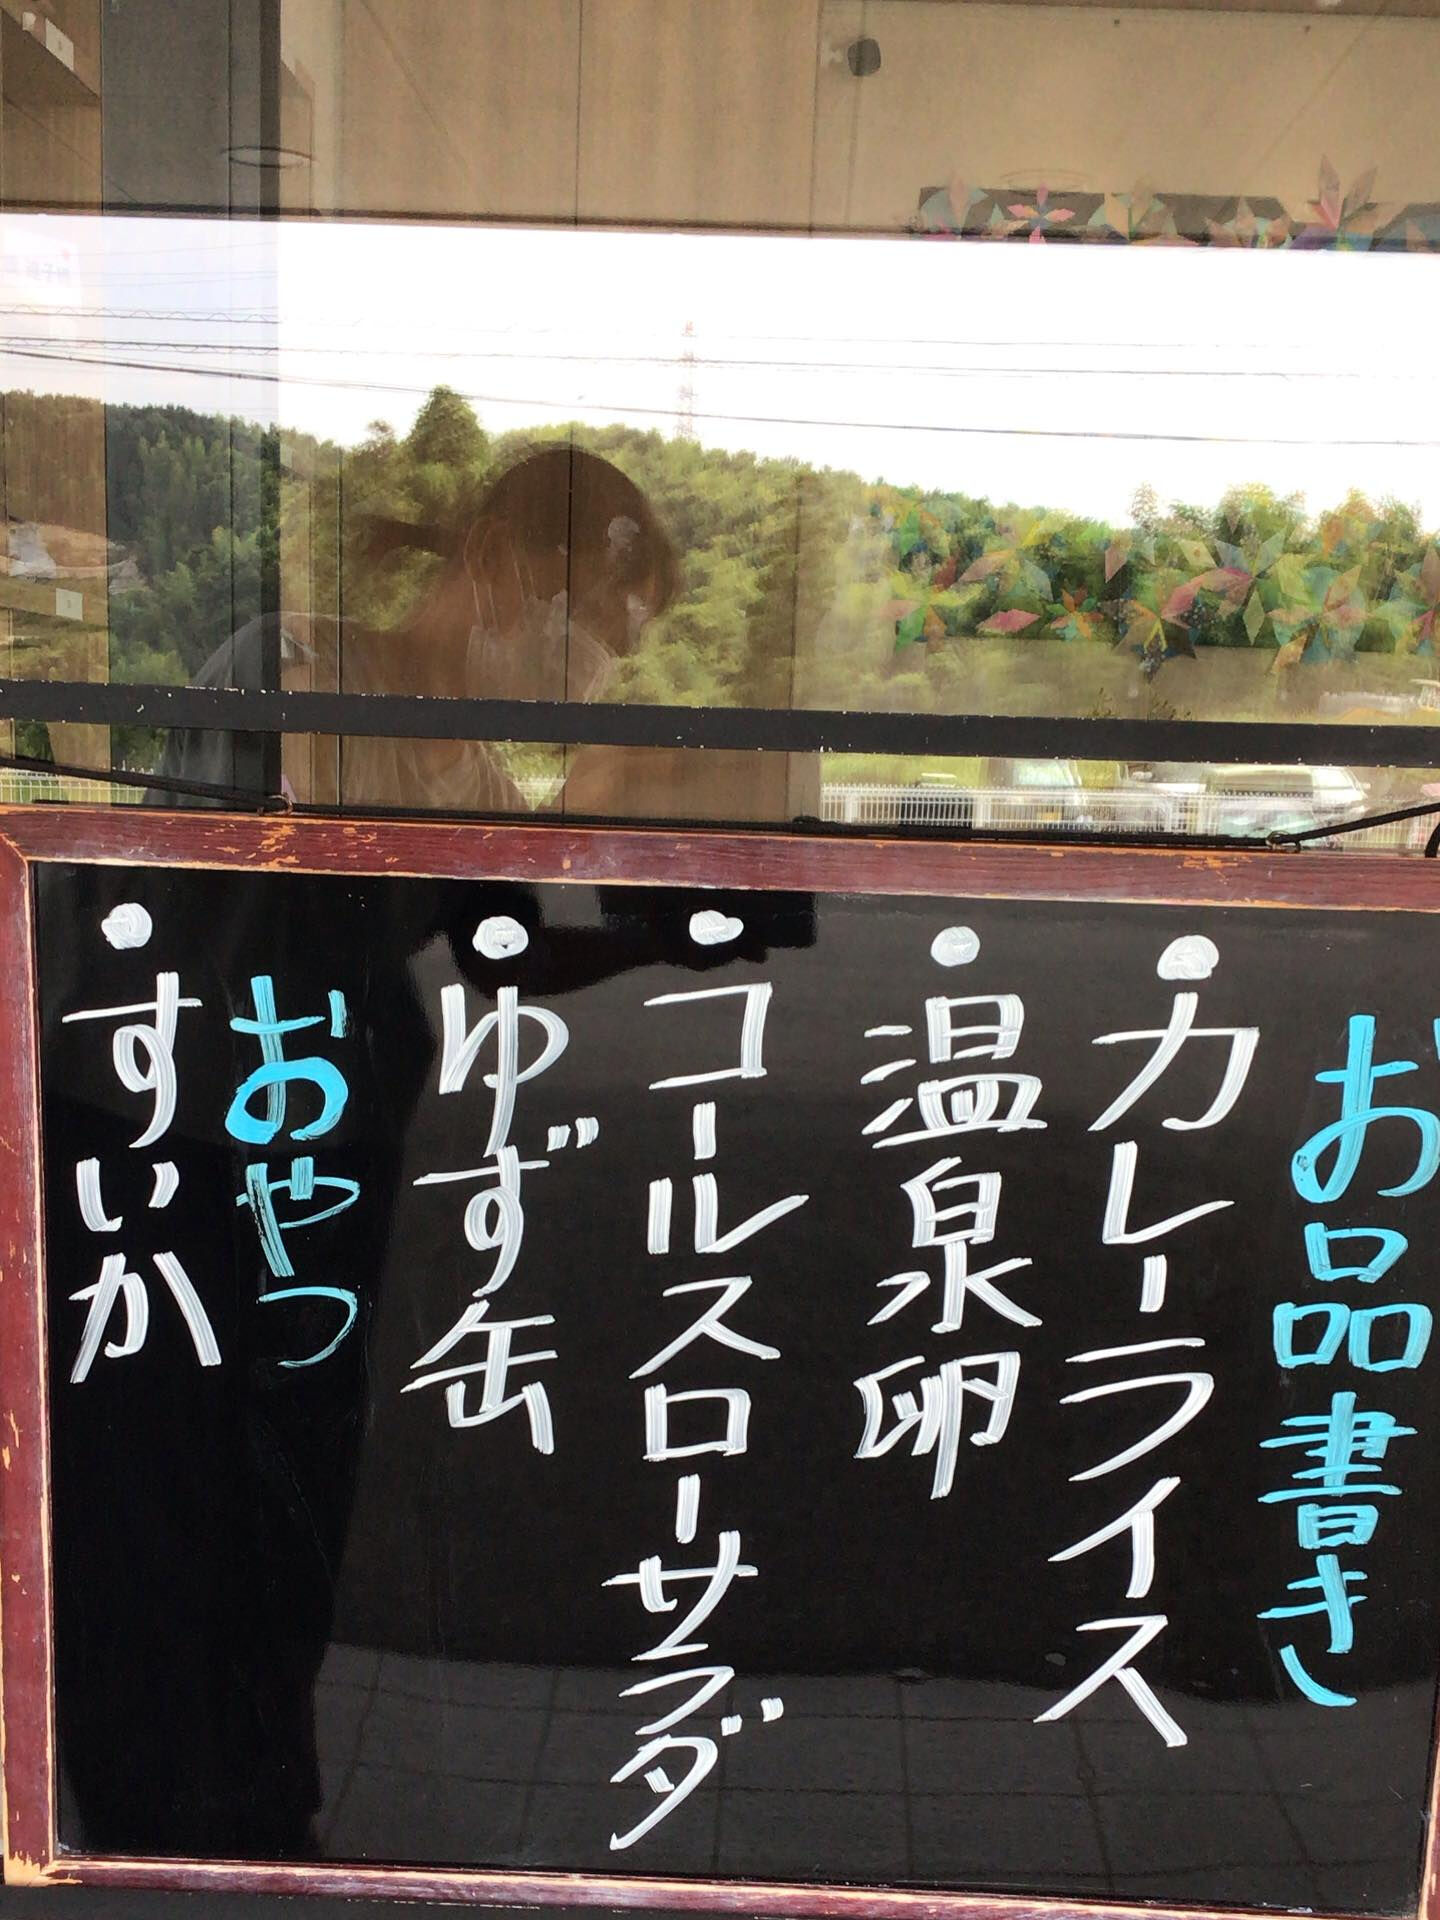 お品書き
・カレーライス
・温泉卵
・コールスローサラダ
・ゆず缶
おやつ
・すいか